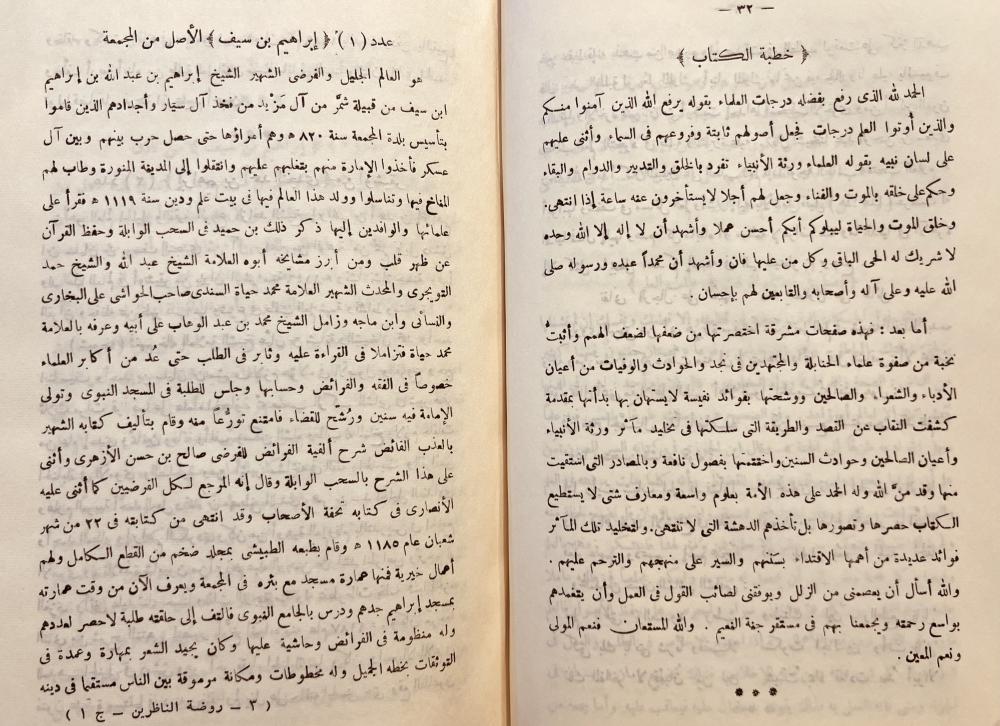 — ٣٢ —
﴿ خطبة الكتاب ﴾
الحمد لله الذى رفع بفضله درجات العلماء بقوله يرفع الله الذين آمنوا منكم
والذين أُوتوا العلم درجات فجعل أصولهم ثابتة وفروعهم فى السماء وأثنى عليهم
على لسان نبيه بقوله العلماء ورثة الأنبياء تفرد بالخلق والتدبير والدوام والبقاء
وحكم على خلقه بالموت والفناء وجعل لهم أجلا لا يستأخرون عنه ساعة إذا انتهى.
وخلق الموت والحياة ليبلوكم أيكم أحسن عملا وأشهد أن لا إله إلا الله وحده
لا شريك له الحى الباقى وكل من عليها فان وأشهد أن محمداً عبده ورسوله صلى
الله عليه وعلى آله وأصحابه والتابعين لهم بإحسان .
أما بعد : فهذه صفحات مشرقة اختصرتها من ضعفها لضعف الهمم وأثبتُّ
نخبة من صفوة علماء الحنابلة والمجتهدين فى نجد والحوادث والوفيات من أعيان
الأدباء والشعراء والصالحين ووشحتها بفوائد نفيسة لا يستهان بها بدأتها بمقدمة
كشفت النقاب عن القصد والطريقة التى سلكتها فى تخليد مآثر ورثة الأنبياء
وأعيان الصالحين وحوادث السنين واختتمتها بفصول نافعة وبالمصادر التى استقيت
منها وقد منَّ الله وله الحمد على هذه الأمة بعلوم واسعة ومعارف شتى لا يستطيع
الكتاب حصرها وتصورها بل تأخذهم الدهشة التى لا تنتهى. ولتخليد تلك المآثر
فوائد عديدة من أهمها الاقتداء بسننهم والسير على منهجهم والترحم عليهم .
والله أسأل أن يعصمنى من الزلل ويوفقنى لصائب القول فى العمل وأن يتغمدهم
بواسع رحمته ويجمعنا بهم فى مستقر جنة النعيم . والله المستعان فنعم المولى
ونعم المعين .
* * *
عدد ( ١ ) ﴿ إبراهيم بن سيف ﴾ الأصل من المجمعة
هو العالم الجليل والفرضى الشهير الشيخ إبراهيم بن عبد الله بن إبراهيم
ابن سيف من قبيلة شمَّر من آل مَزْيد من فخذ آل سيار وأجدادهم الذين قاموا
بتأسيس بلدة المجمعة سنة ٨٢٠ ه وهم أمراؤها حتى حصل حرب بينهم وبين آل
عسكر فأخذوا الإمارة منهم بتغلبهم عليهم وانتقلوا إلى المدينة المنورة وطاب لهم
المناخ فيها وتناسلوا وولد هذا العالم فيها فى بيت علم ودين سنة ١١١٩ ه فقرأ على
علمائها والوافدين إليها ذكر ذلك بن حميد فى السحب الوابلة وحفظ القرآن
عن ظهر قلب ومن أبرز مشايخه أبوه العلامة الشيخ عبد الله والشيخ حمد
التويجرى والمحدث الشهير العلامة محمد حياة السندى صاحب الحواشى على البخارى
والنسائى وابن ماجه وزامل الشيخ محمد بن عبد الوهاب على أبيه وعرفه بالعلامة
محمد حياة فتزاملا فى القراءة عليه وثابر فى الطلب حتى عُد من أكابر العلماء
خصوصاً فى الفقه والفرائض وحسابها وجلس للطلبة فى المسجد النبوى وتولى
الإمامة فيه سنين ورُشح للقضاء فامتنع تورُّعاً منه وقام بتأليف كتابه الشهير
بالعذب الفائض شرح ألفية الفرائض للفرضى صالح بن حسن الأزهرى وأثنى
على هذا الشرح بالسحب الوابلة وقال إنه المرجع لكل الفرضيين كما أثنى عليه
الأنصارى فى كتابه تحفة الأصحاب وقد انتهى من كتابته فى ٢٢ من شهر
شعبان عام ١١٨٥ ه وقام بطبعه الطبيشى بمجلد ضخم من القطع الكامل ولهم
أعمال خيرية فمنها عمارة مسجد مع بئره فى المجمعة ويعرف الآن من وقت عمارته
بمسجد إبراهيم جدهم ودرس بالجامع النبوى فالتف إلى حلقته طلبة لا حصر لعددهم
وله منظومة فى الفرائض وحاشية عليها وكان يجيد الشعر بمهارة وعمدة فى
التوثقات بخطه الجميل وله مخطوطات ومكانة مرموقة بين الناس مستقيما فى دينه
( ٣ — روضة الناظرين — ج ١ )